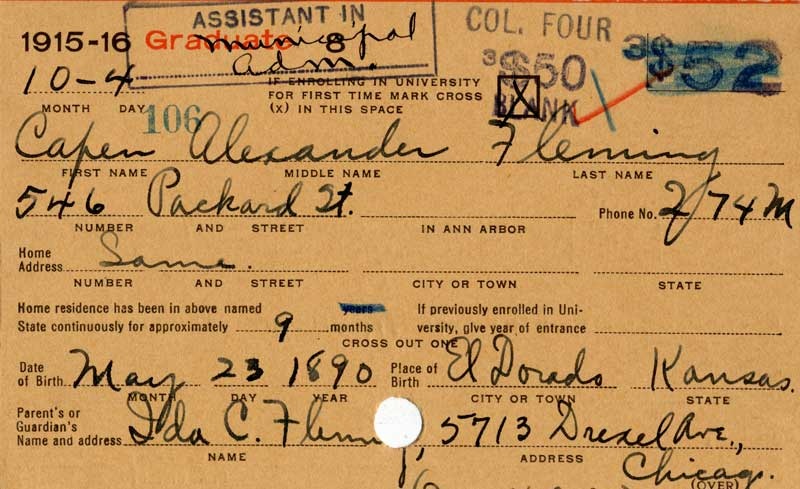 ASSISTANT IN
COL. FOUR
1915-16 Graduate 8
municipal
adm.
3 $50
3 $52
BLANK
10-4
MONTH DAY
IF ENROLLING IN UNIVERSITY
FOR FIRST TIME MARK CROSS
(X) IN THIS SPACE
X
106
Capen Alexander Fleming
FIRST NAME MIDDLE NAME LAST NAME
546 Packard St. Phone No. 2174M
NUMBER AND STREET IN ANN ARBOR
Home
Address Same.
NUMBER AND STREET CITY OR TOWN STATE
Home residence has been in above named years
State continuously for approximately 9 months
If previously enrolled in Uni-
versity, give year of entrance
CROSS OUT ONE
Date
of Birth May 23 1890
Place of
Birth El Dorado Kansas.
MONTH DAY YEAR CITY OR TOWN STATE
Parent's or
Guardian's
Name and address Ida C. Fleming, 5713 Drexel Ave.,
NAME ADDRESS
Chicago.
(OVER)